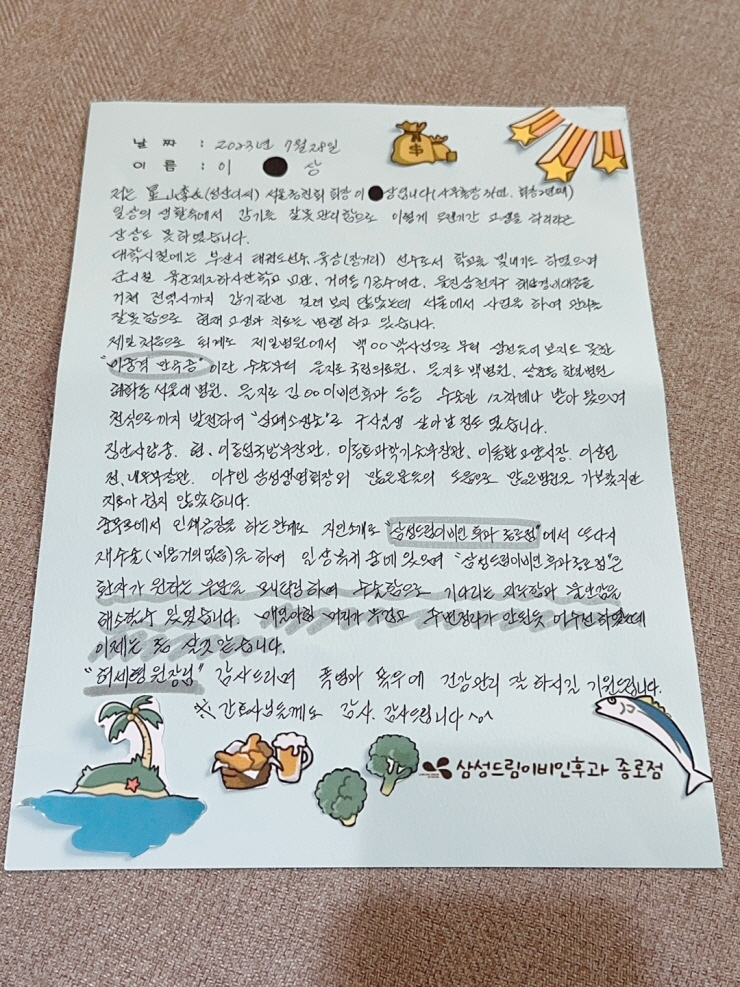 날 짜 : 2023년 7월 28일
이 름 : 이 상
저는 星山李氏(성산이씨) 서울종친회 회장 이 상입니다
일상의 생활속에서 감기를 잘못관리함으로 이렇게 오랜기간 고생을 하리라곤
상상도 못하였습니다.
대학시절에는 부산시 태권도선수, 육상(장거리) 선수로서 학교를 빛내기도 하였으며
군시절 육군제3하사관학교 교관, 거여동 7공수여단, 울진삼척지구
거쳐 전역시까지 감기한번 걸려 보지 않았는데 서울에서 사업을 하며 관리를
잘못함으로 현재 고생과 치료를 병행 하고 있습니다.
제일 처음으로 퇴계로 제일병원에서 백OO 박사님으로 부터 생전듣어 보지도 못한
"비중격 만곡증" 이란 수술부터 을지로 국립의료원, 을지로 백병원, 한방병원
혜화동 서울대 병원, 을지로 김OO 이비인후과 등등 수술만 12차례나 받아 왔으며
천식으로까지 발전하여 "심폐소생술"로 구사일생 살아날 정도 였습니다.
집안사람중, 현, 이종섭국방부장관, 이종호과학기술부장관, 이동환고양시장, 이상민
전, 내무부장관, 이수빈 삼성생명회장외 많은분들의 도움으로 많은병원은 가보았지만
치료가 쉽지 않았습니다.
충무로에서 인쇄공장을 하는관계로 지인소개로 "삼성드림이비인후과 종로점"에서 또다시
재수술(비용거의없음)을 하여 있으며 "삼성드림이비인후과종로점"은
환자가 원하는 부분을 하여 수술함으로 기다리는 지루함과 불안감을
해소할수 있었습니다. 수면정리가 안된듯 하였는데
이제는 좀 살것 같습니다.
"허세형 원장님" 감사드리며 폭염과 폭우에 건강관리 잘 하시길 기원드립니다.
※ 간호사님들께도 감사. 감사드립니다 ^^
삼성드림이비인후과 종로점